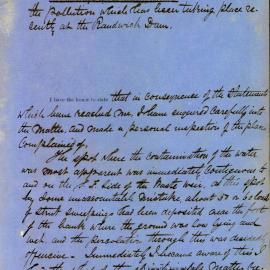 the pollution which has been taking place re-
cently at the Randwick Dam.
I have the honor to state that in consequence of the Statement
which have reached me, I have enquired carefully into
the Matter, and made a personal inspection of the place
Complained of.
The spot where the contamination of the water
was most apparent was immediately contiguous to
and on the S.E. side of the Waste weir, at this spot
by some unaccountable mistake, about 50 or 60 loads
of street sweepings had been deposited near the foot
of the bank where the ground was low lying and
wet and the percolation through this was decidedly
offensive. Immediately I became aware of this I